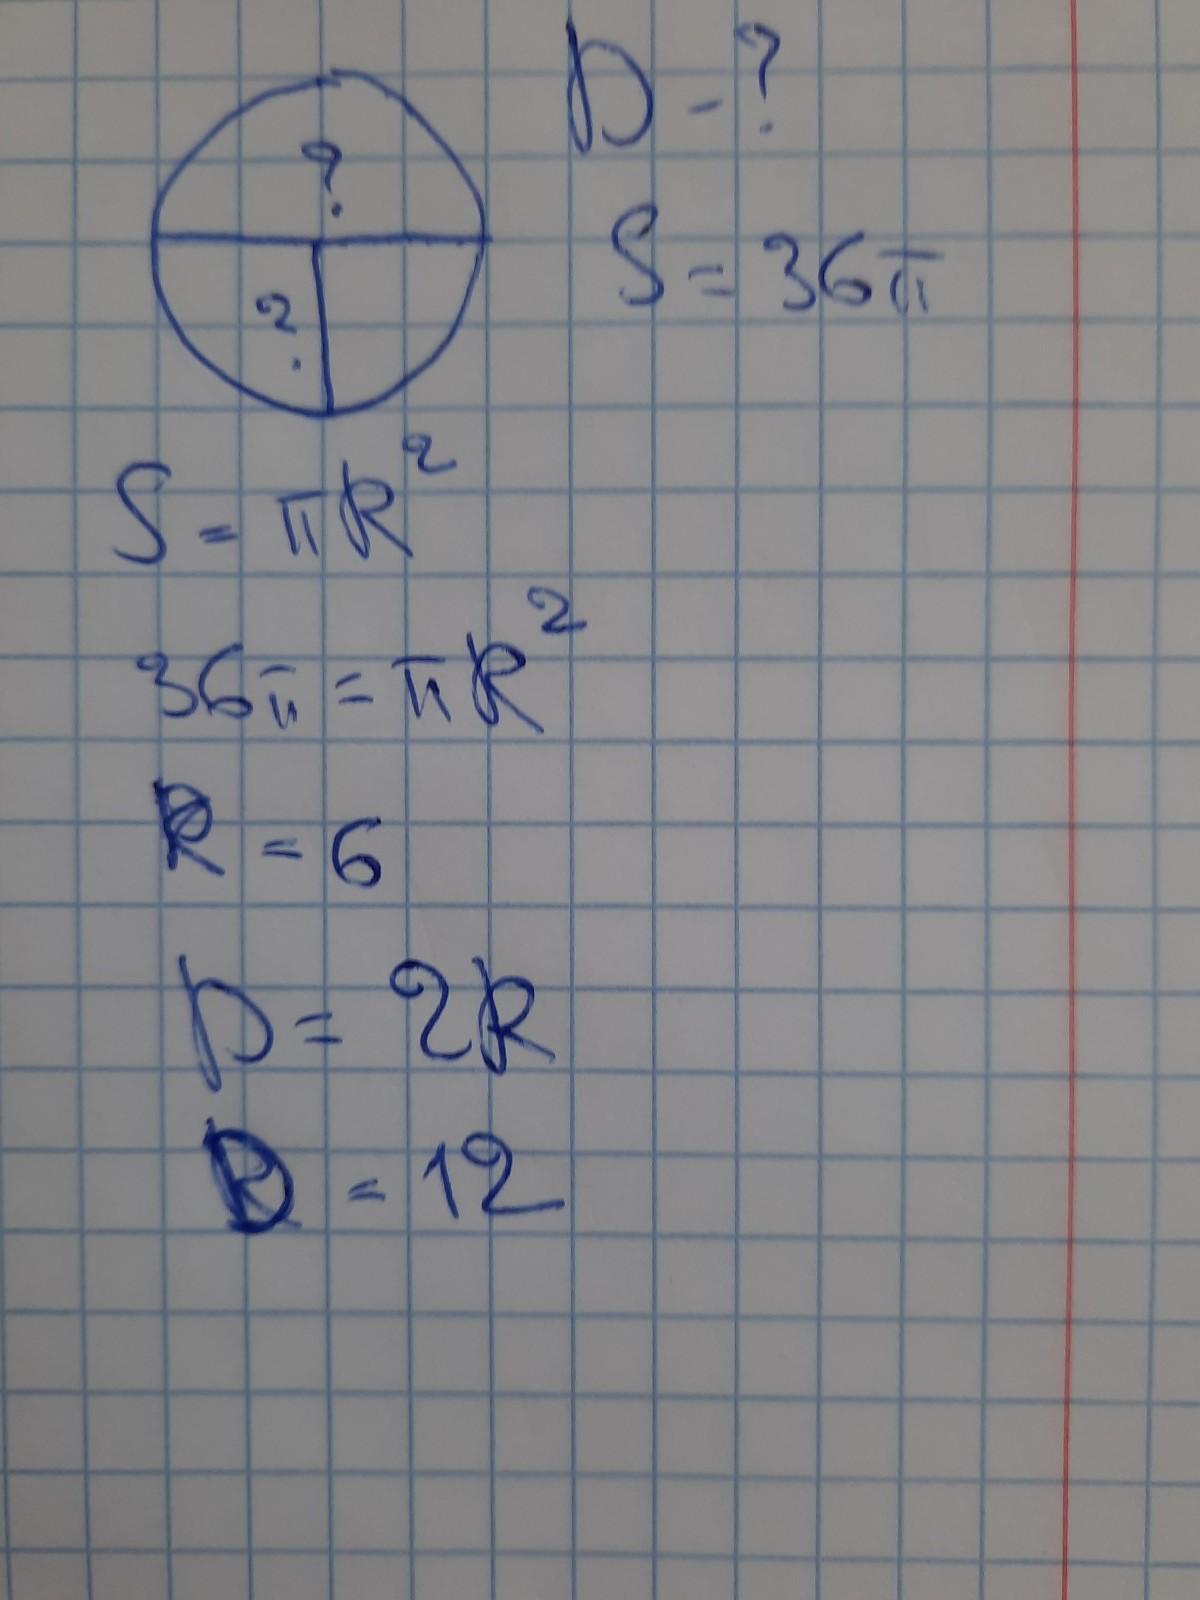 D - ?
?
S = 36π
?
S = πR²
36π = πR²
R = 6
D = 2R
D = 12